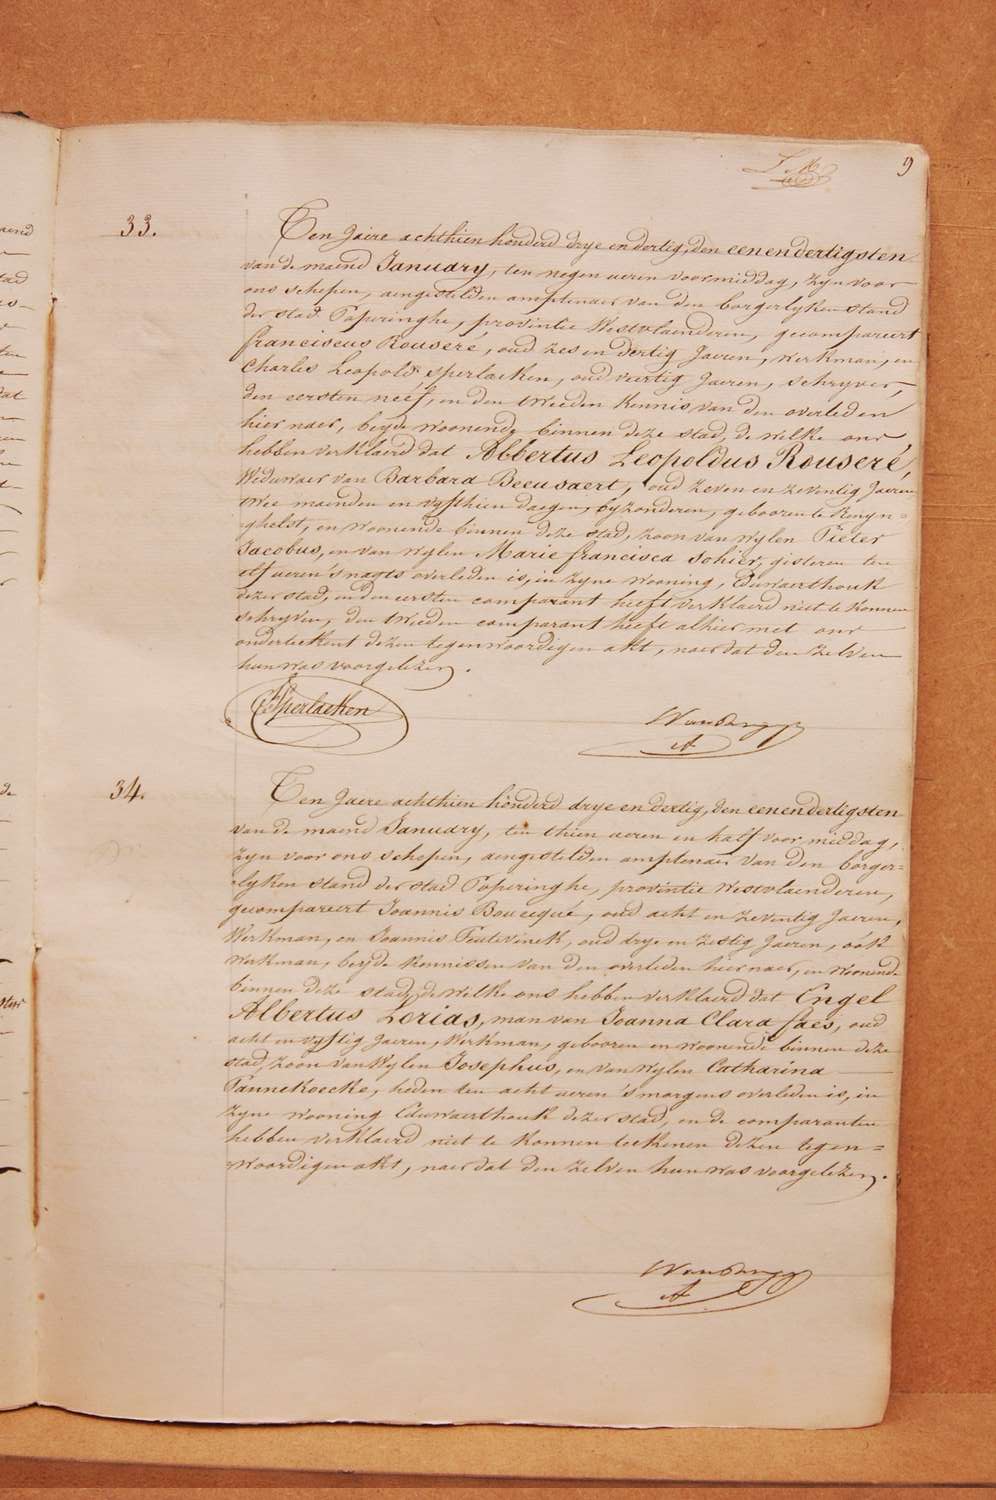 9
33.
Ten Jaere achthien honderd drye en dertig, den een en dertigsten
van de maend January, ten negen ueren voormiddag, zyn voor
ons schepen, aengestelden amptenaer van den borgerlyken stand
der stad Poperinghe, provintie Westvlaenderen, gecompareert
franciscus Rouseré, oud zes en dertig Jaeren, werkman, en
Charles Leopold Sperlaeken, oud veertig Jaeren, schryver,
den eersten neéf, en den tweeden kennis van den overleden
hier naer, beyde woonende binnen deze stad, de welke ons
hebben verklaerd dat Albertus Leopoldus Rouseré,
Weduwaer van Barbara Beeusaert, oud zeven en zeventig Jaeren
twee maenden en vyfthien daegen, byzonderen, gebooren te Renyn=
=ghelst, en woonende binnen deze stad, zoon van wylen Pieter
Jacobus, en van wylen Marie francisca Sohier, gisteren ten
elf ueren 's nagts overleden is, in zyne wooning, Eduwaerthouk
dezer stad, en den eersten comparant heeft verklaerd niet te konnen
schryven, den tweeden comparant heeft alhier met ons
onderteekent dezen tegenwoordigen akt, naer dat den zelven
hun was voorgelezen.
Sperlaeken
34.
Ten Jaere achthien honderd drye en dertig, den een en dertigsten
van de maend January, ten thien ueren en half voormiddag,
zyn voor ons schepen, aengestelden amptenaer van den borger=
=lyken stand der stad Poperinghe, provintie Westvlaenderen,
gecompareert Joannis Boucqué, oud acht en zeventig Jaeren,
Werkman, en Joannis Teutevinck, oud drye en zestig Jaeren, oók
werkman, beyde kennissen van den overleden hier naer, en woonende
binnen deze stad, de welke ons hebben verklaerd dat Engel
Albertus Lorias, man van Joanna Clara faes, oud
acht en vyftig Jaeren, Werkman, gebooren en woonende binnen deze
stad, zoon van Wylen Josephus, en van wylen Catharina
Pannekoecke, heden ten acht ueren 's morgens overleden is, in
zyne wooning Eduwaerthouk dezer stad, en de comparanten
hebben verklaerd niet te konnen teekenen dezen tegen=
=woordigen akt, naer dat den zelven hun was voorgelezen.